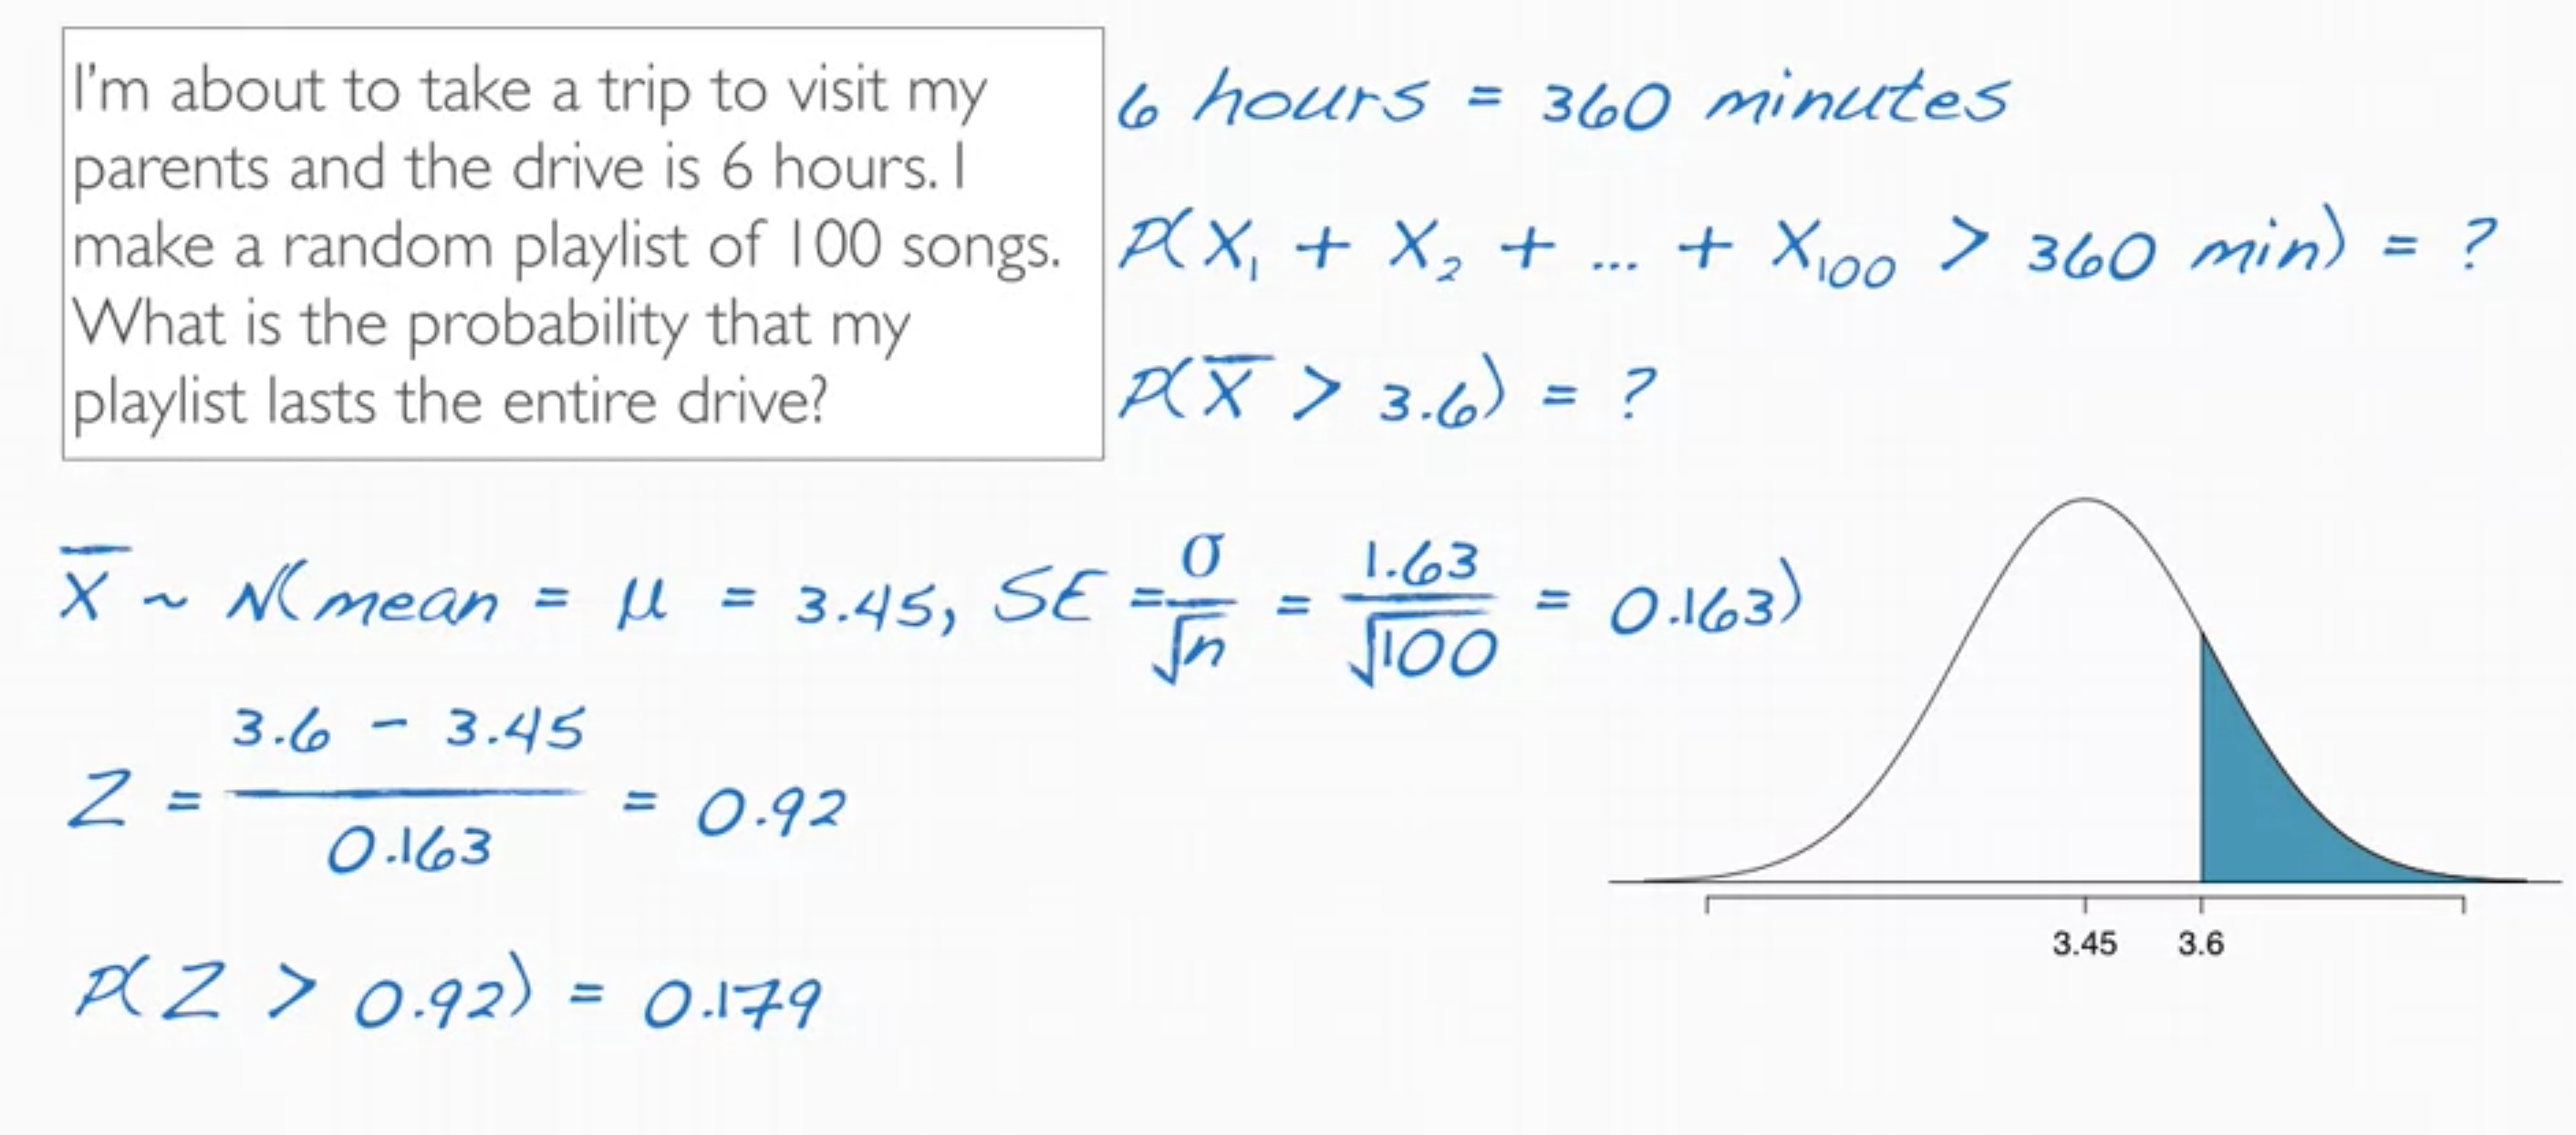 I'm about to take a trip to visit my
parents and the drive is 6 hours. I
make a random playlist of 100 songs.
What is the probability that my
playlist lasts the entire drive?
6 hours = 360 minutes
P(X₁ + X₂ + ... + X₁₀₀ > 360 min) = ?
P(X̄ > 3.6) = ?
X̄ ~ N(mean = μ = 3.45, SE = σ/√n = 1.63/√100 = 0.163)
Z = (3.6 - 3.45)/0.163 = 0.92
P(Z > 0.92) = 0.179
3.45 3.6